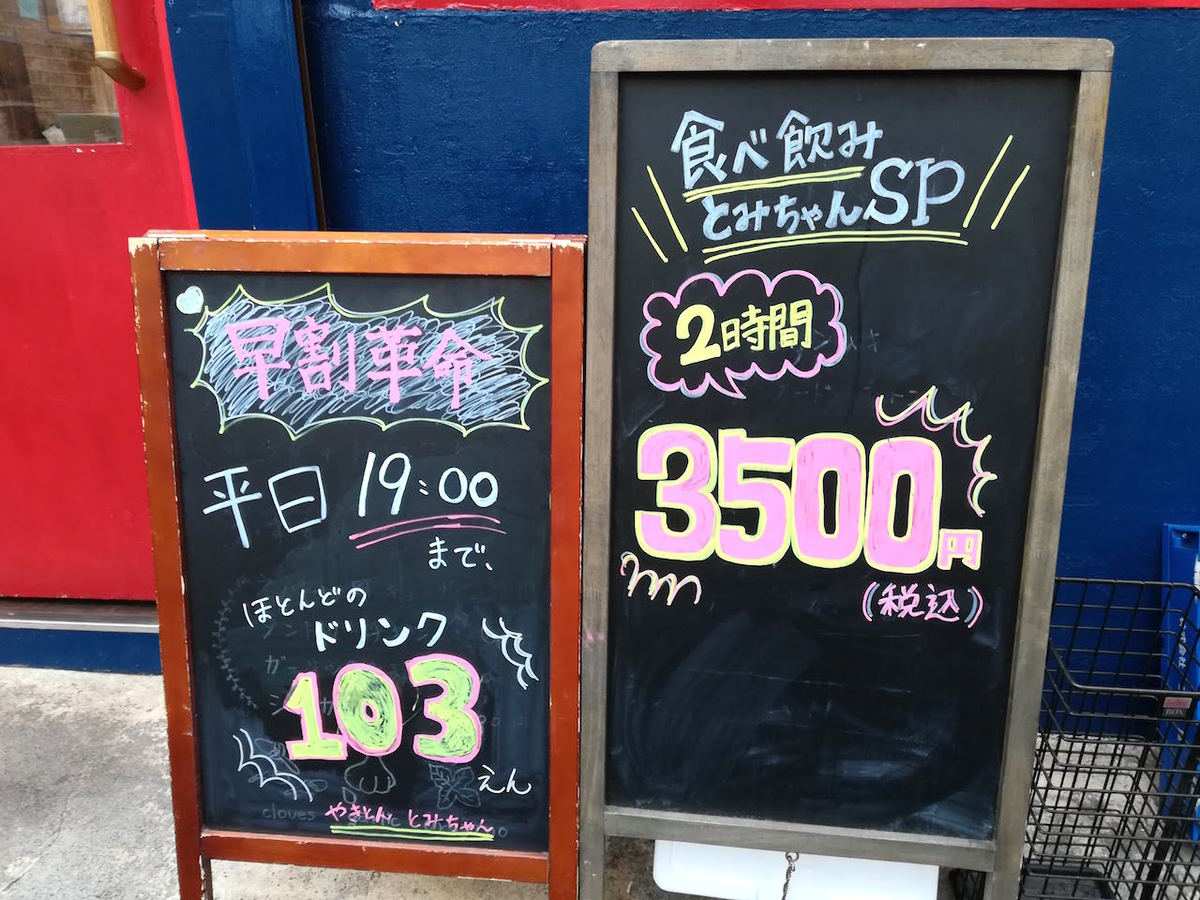 早割革命
平日 19:00
まで、
ほとんどの
ドリンク
103
えん
cloves
やきとん とみちゃん
食べ飲み
とみちゃんSP
2時間
3500円
(税込)
BOX